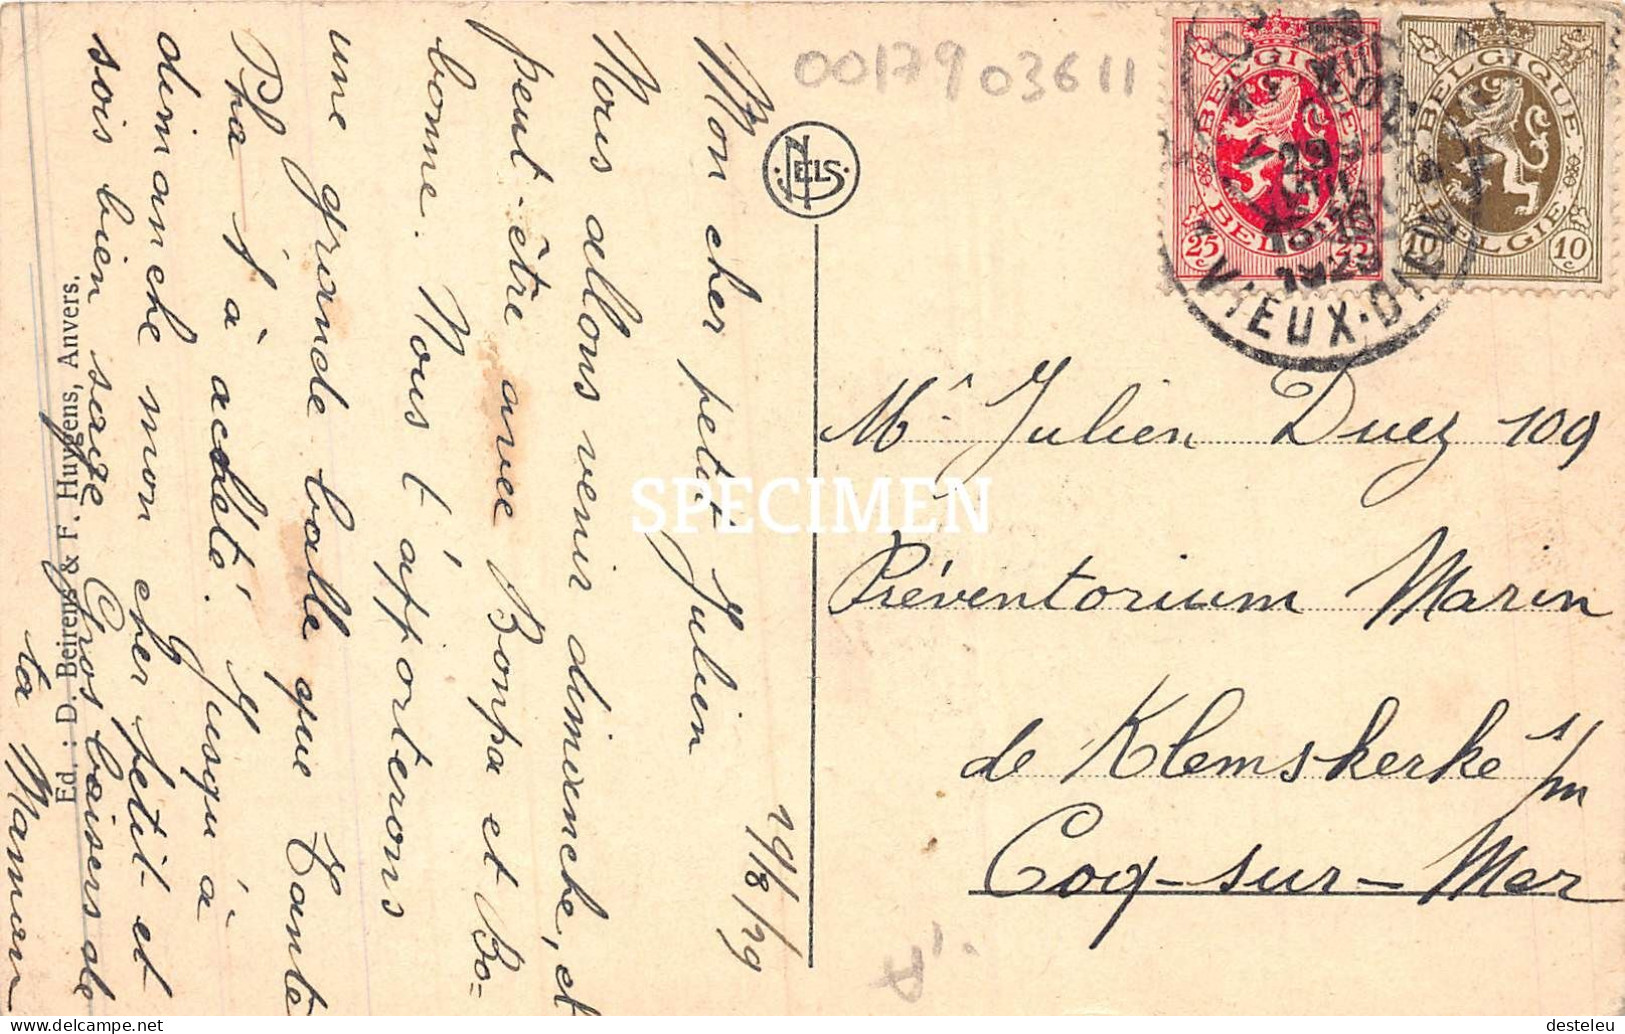 29/8/29
Mon cher petit Julien
Nous allons venir dimanche, et
peut-être avec Bonpa et Bo=
bonne. Nous t'apporterons
une grande balle que Tante
Pha t'a acheté. Jusqu'à
dimanche mon cher petit et
sois bien sage Gros baisers de
ta Maman
Ed. : D. Beirens & F. Huygens, Anvers.
NELS
00179 03611
BELGIQUE
BELGIE
25 25
BELGIQUE
BELGIE
10 10
29
VIII
1929
VIEUX-DIEU
Mr Julien Duez 109
Préventorium Marin
de Klemskerke s/m
Coq-sur-Mer
A
SPECIMEN
delcampe.net
desteleu